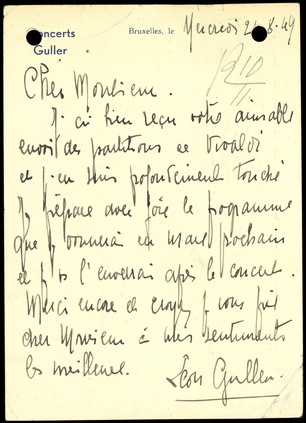 Concerts
Guller
Bruxelles, le Mercredi 24.8.49
R 10
11
Cher Monsieur.
J'ai bien reçu votre aimable
envoi des partitions de Vivaldi
et j'en suis profondément touché
Je prépare avec joie le programme
que je donnerai en mars prochain
et je vs l'enverrai après le concert.
Merci encore et croyez je vous prie
cher Monsieur à mes sentiments
les meilleurs.
Léon Guller.